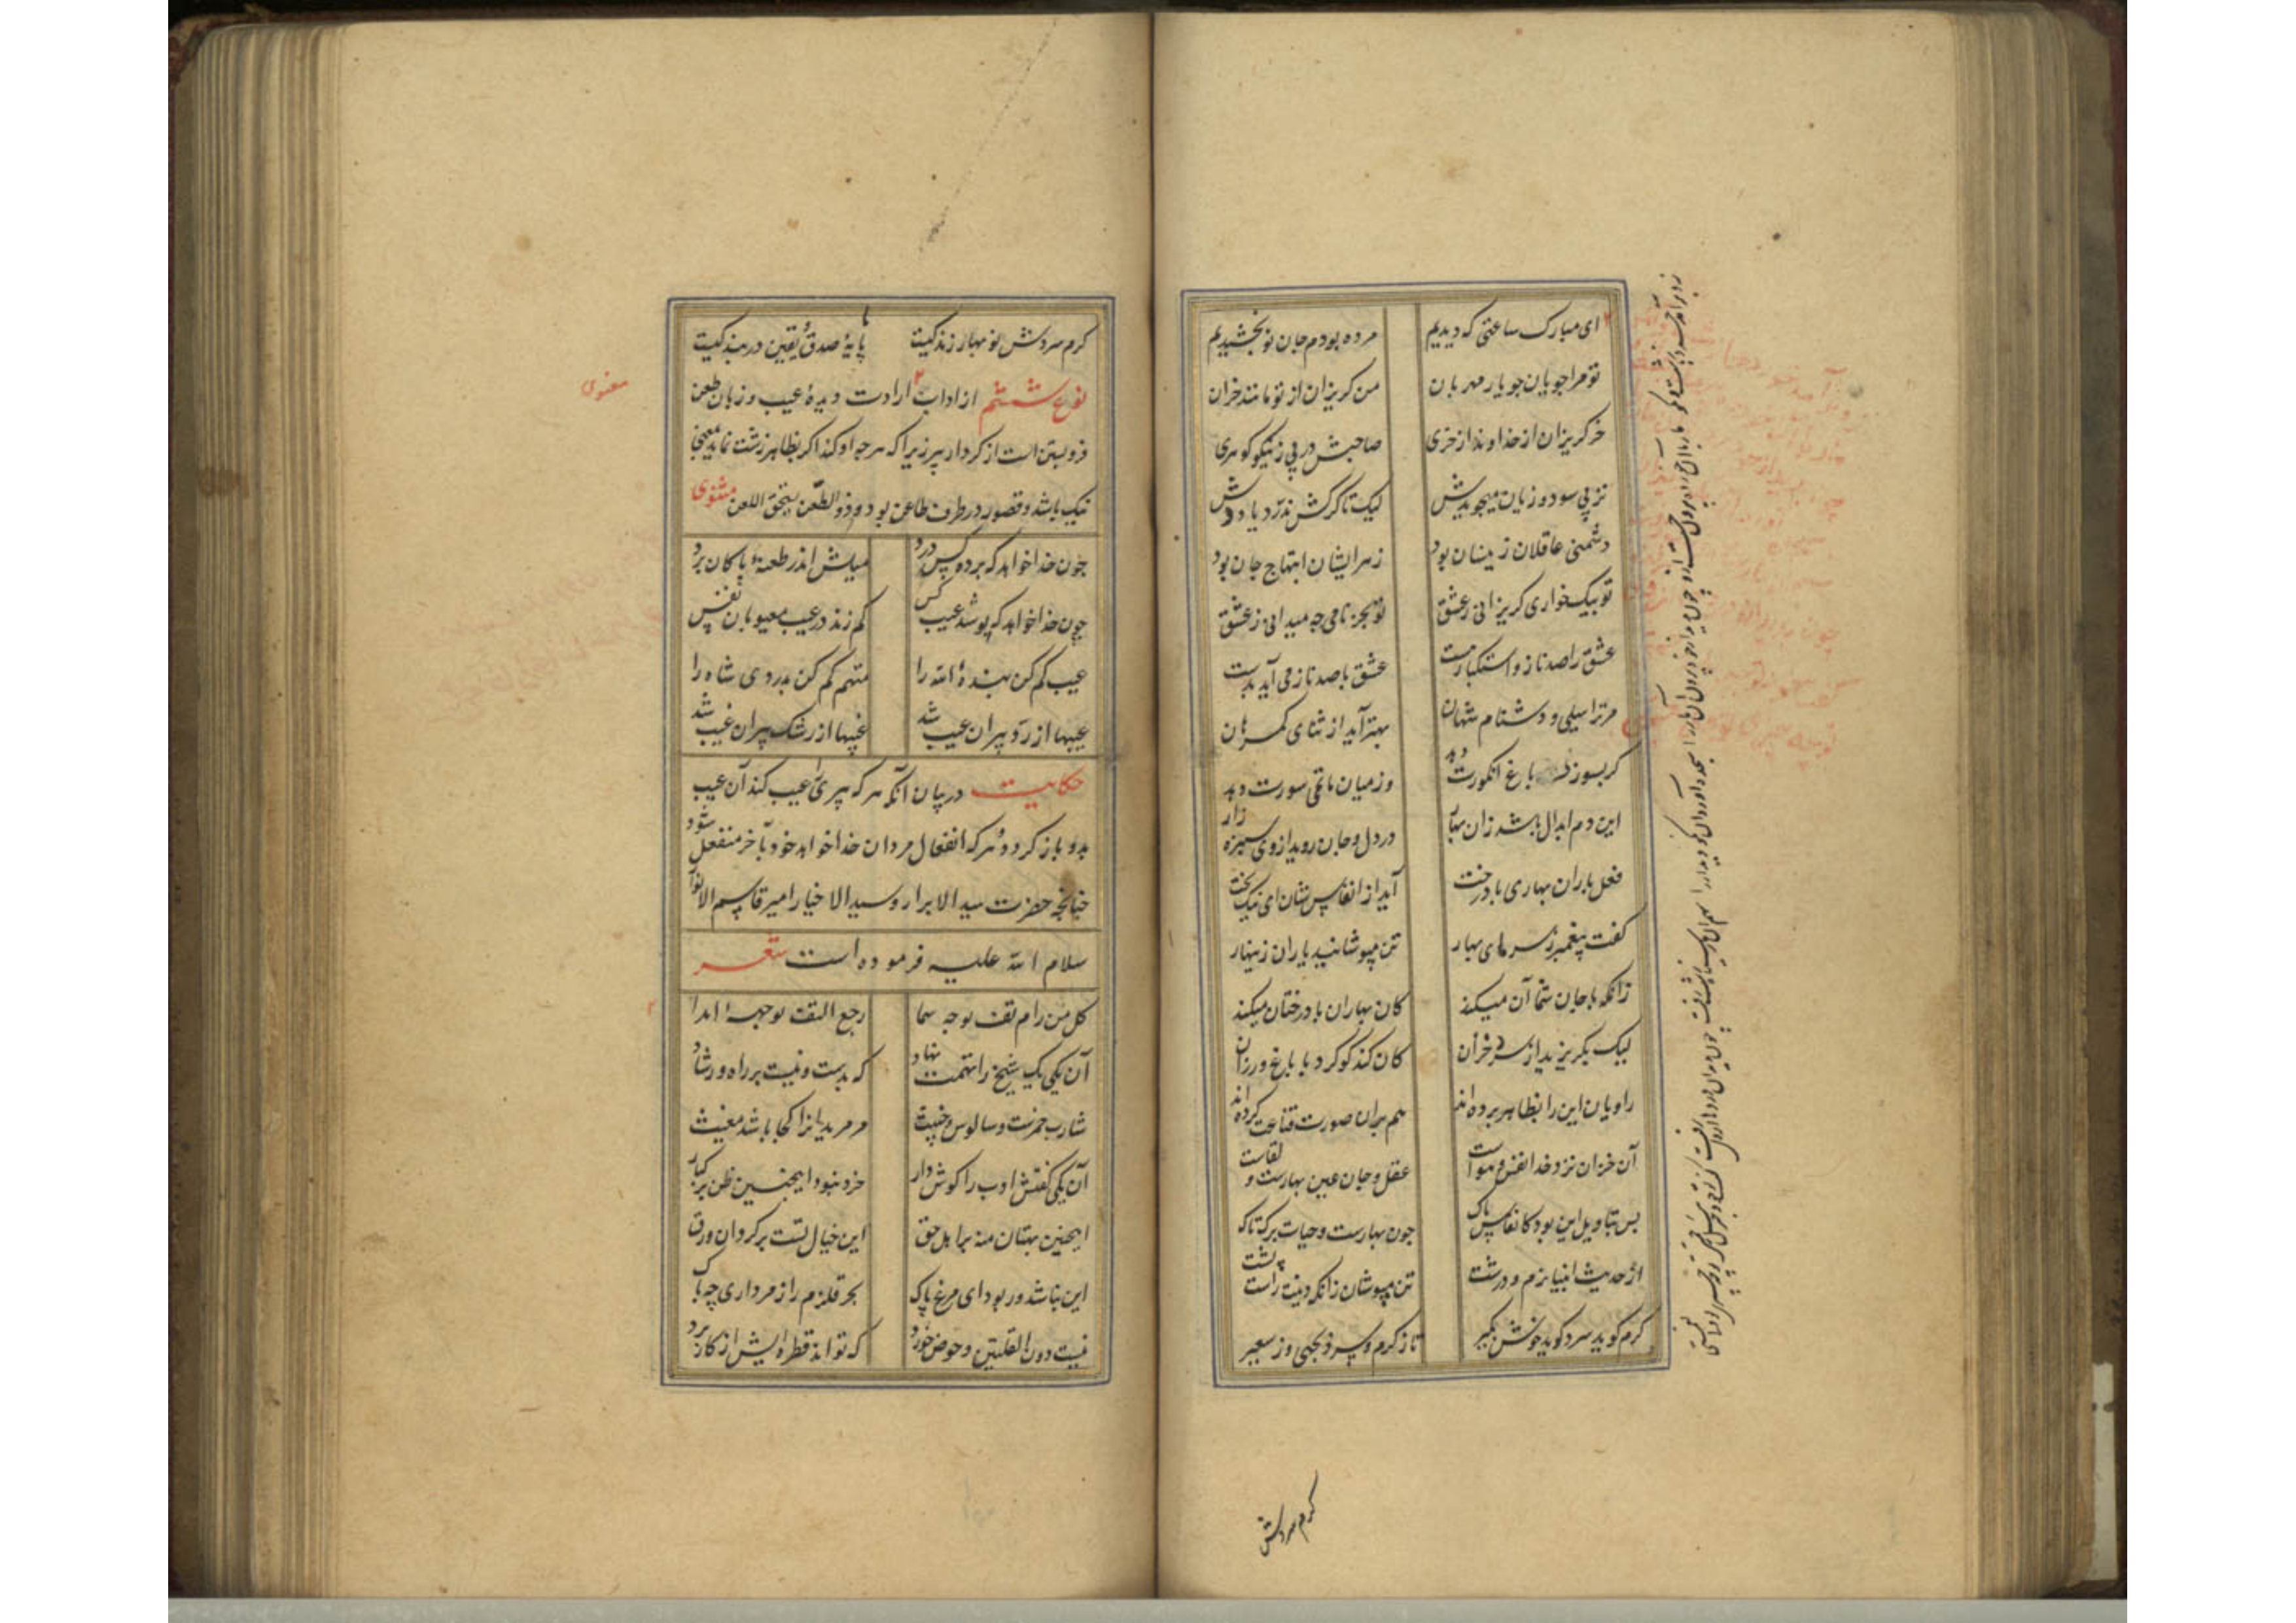 ای مبارک ساعتی که دیدیم مرده بودم جان نو بخشیدیم
تو مرا جویان چو یار مهربان من کریزان از تو مانند خران
خر کریزان از خداوند از خری صاحبش در پی ز نیکو کوهری
نز پی سود و زیان میجویدش لیک تا کرکش ندرد یا ددش
دشمنی عاقلان زینسان بود زهر ایشان ابتهاج جان بود
تو بیک خواری کریزانی ز عشق تو بجز نامی چه میدانی ز عشق
عشق را صد ناز و استکبار هست عشق با صد ناز می آید بدست
مر ترا سیلی و دشنام شهان بهتر آید از ثنای کمرهان
کر بسوزد باغ انکورت دهد وز میان ماتمی سورت دهد
این دم ابدال باشد زان بهار در دل و جان روید از وی سبزه زار
فعل باران بهاری با درخت آید از انفاس شان ای نیک بخت
کفت پیغمبر ز سرمای بهار تن مپوشانید یاران زینهار
زانکه با جان شما آن میکند کان بهاران با درختان میکند
لیک بکریزید از سرد خزان کان کند کو کرد با باغ و رزان
راویان این را بظاهر برده اند هم بران صورت قناعت کرده اند
آن خزان نزد خدا نفس و هواست عقل و جان عین بهارست و لقاست
بس بتاویل این بود کانفاس پاک چون بهارست و حیات برک تاک
از حدیث انبیا نرم و درشت تن مپوشان زانکه دینت راست پشت
کرم کوید سرد کوید خوش بکیر تا ز کرم و سرد بجهی وز سعیر
کرم سردش
کرم سردش نو بهار زندکیت پایهٔ صدق و یقین در بندکیت
نوع ششم از اداب ارادت دیدهٔ عیب و زبان طعن
معنوی
فروبستن است از کردار پیر زیرا که هرچه او کند اکر بظاهر زشت نماید بمعنی
نیک باشد و قصور در طرف طاعن بود و ذو الطعن یستحق اللعن مثنوی
چون خدا خواهد که پرده کس درد میلش اندر طعنهٔ پاکان برد
چون خدا خواهد که پوشد عیب کس کم زند در عیب معیوبان نفس
عیب کم کن بندهٔ الله را متهم کم کن بدزدی شاه را
عیبها از رد پیران عیب شد غیبها از رشک پیران غیب شد
حکایت در بیان آنکه هر که پیری را عیب کند آن عیب
بدو باز کردد و هر که انفعال مردان خدا خواهد خود بآخر منفعل شود
چنانچه حضرت سید الابرار و سید الاخیار امیر قاسم الانوار
سلام الله علیه فرموده است شعر
کل من رام تف بوجه سما رجع التف بوجهه ابدا
آن یکی یک شیخ را تهمت نهاد که بدست و نیست بر راه و رشاد
شارب خمرست و سالوس و خبیث مر مریدانرا کجا باشد مغیث
آن یکی کفتش ادب را کوش دار خرد نبود اینچنین ظن بر کبار
اینچنین بهتان منه بر اهل حق این خیال تست برکردان ورق
این نباشد ور بود ای مرغ پاک بحر قلزم را ز مرداری چه باک
نیست دون القلتین و حوض خورد که تواند قطره ایش از کار برد